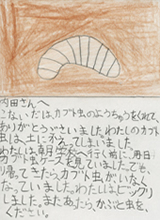 内田さんへ
こないだは、カブト虫のようちゅうをくれて
ありがとうございました。わたしのカブト
虫は土にかえってしまいました。
わたしは、朝学校へ行く前に、毎日
カブト虫ケースを見ていました。でも、
帰ってきたらカブト虫がいなく
なっていました。わたしはビックリ
しました。またあたら、かぶと虫を、
ください。